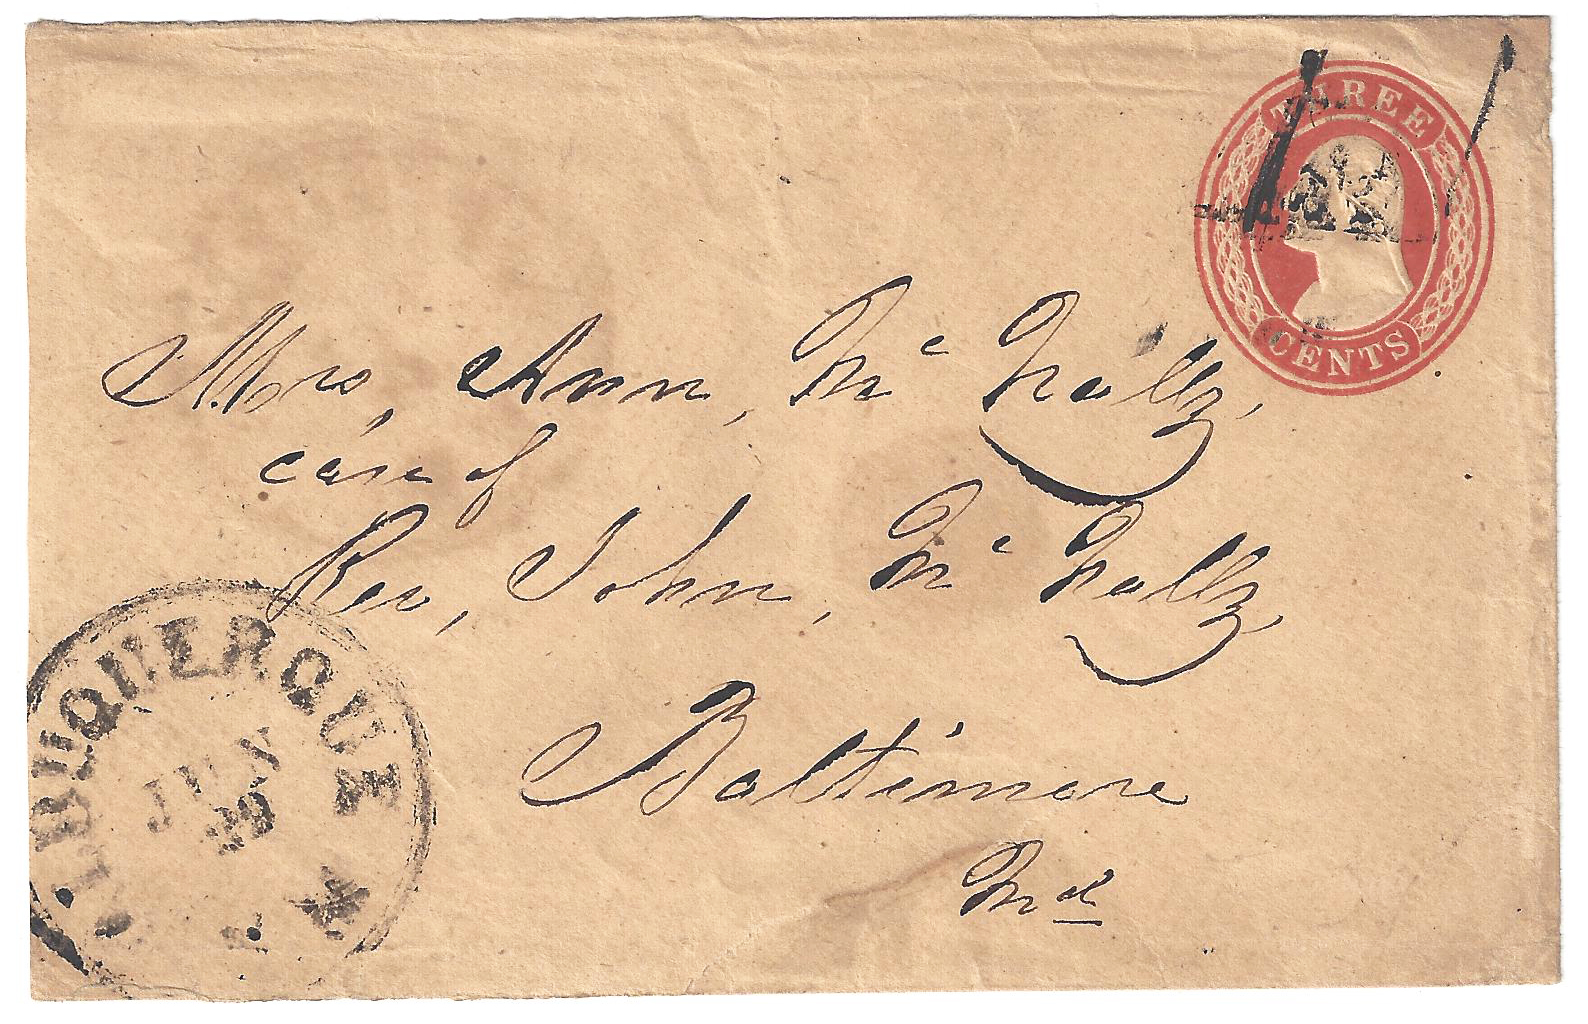 THREE
CENTS
Mrs, Ann, Mc Nally,
care of
Rev, John, Mc Nally,
Baltimore
Md
ALBUQUERQUE N
JUN
29